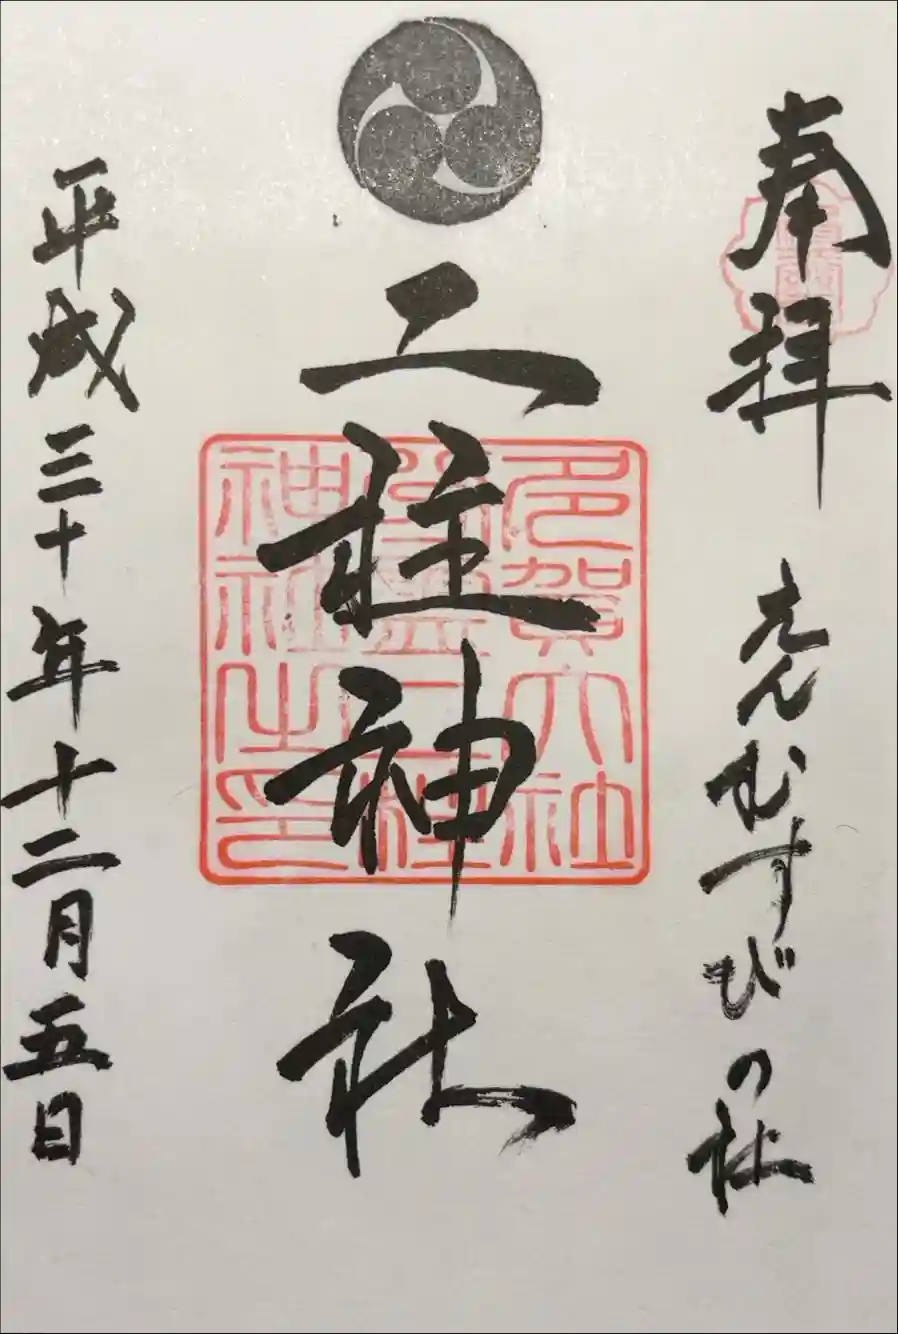 奉拝
えんむすびの社
二柱神社
多賀大社
神社之印
平成三十年十二月五日